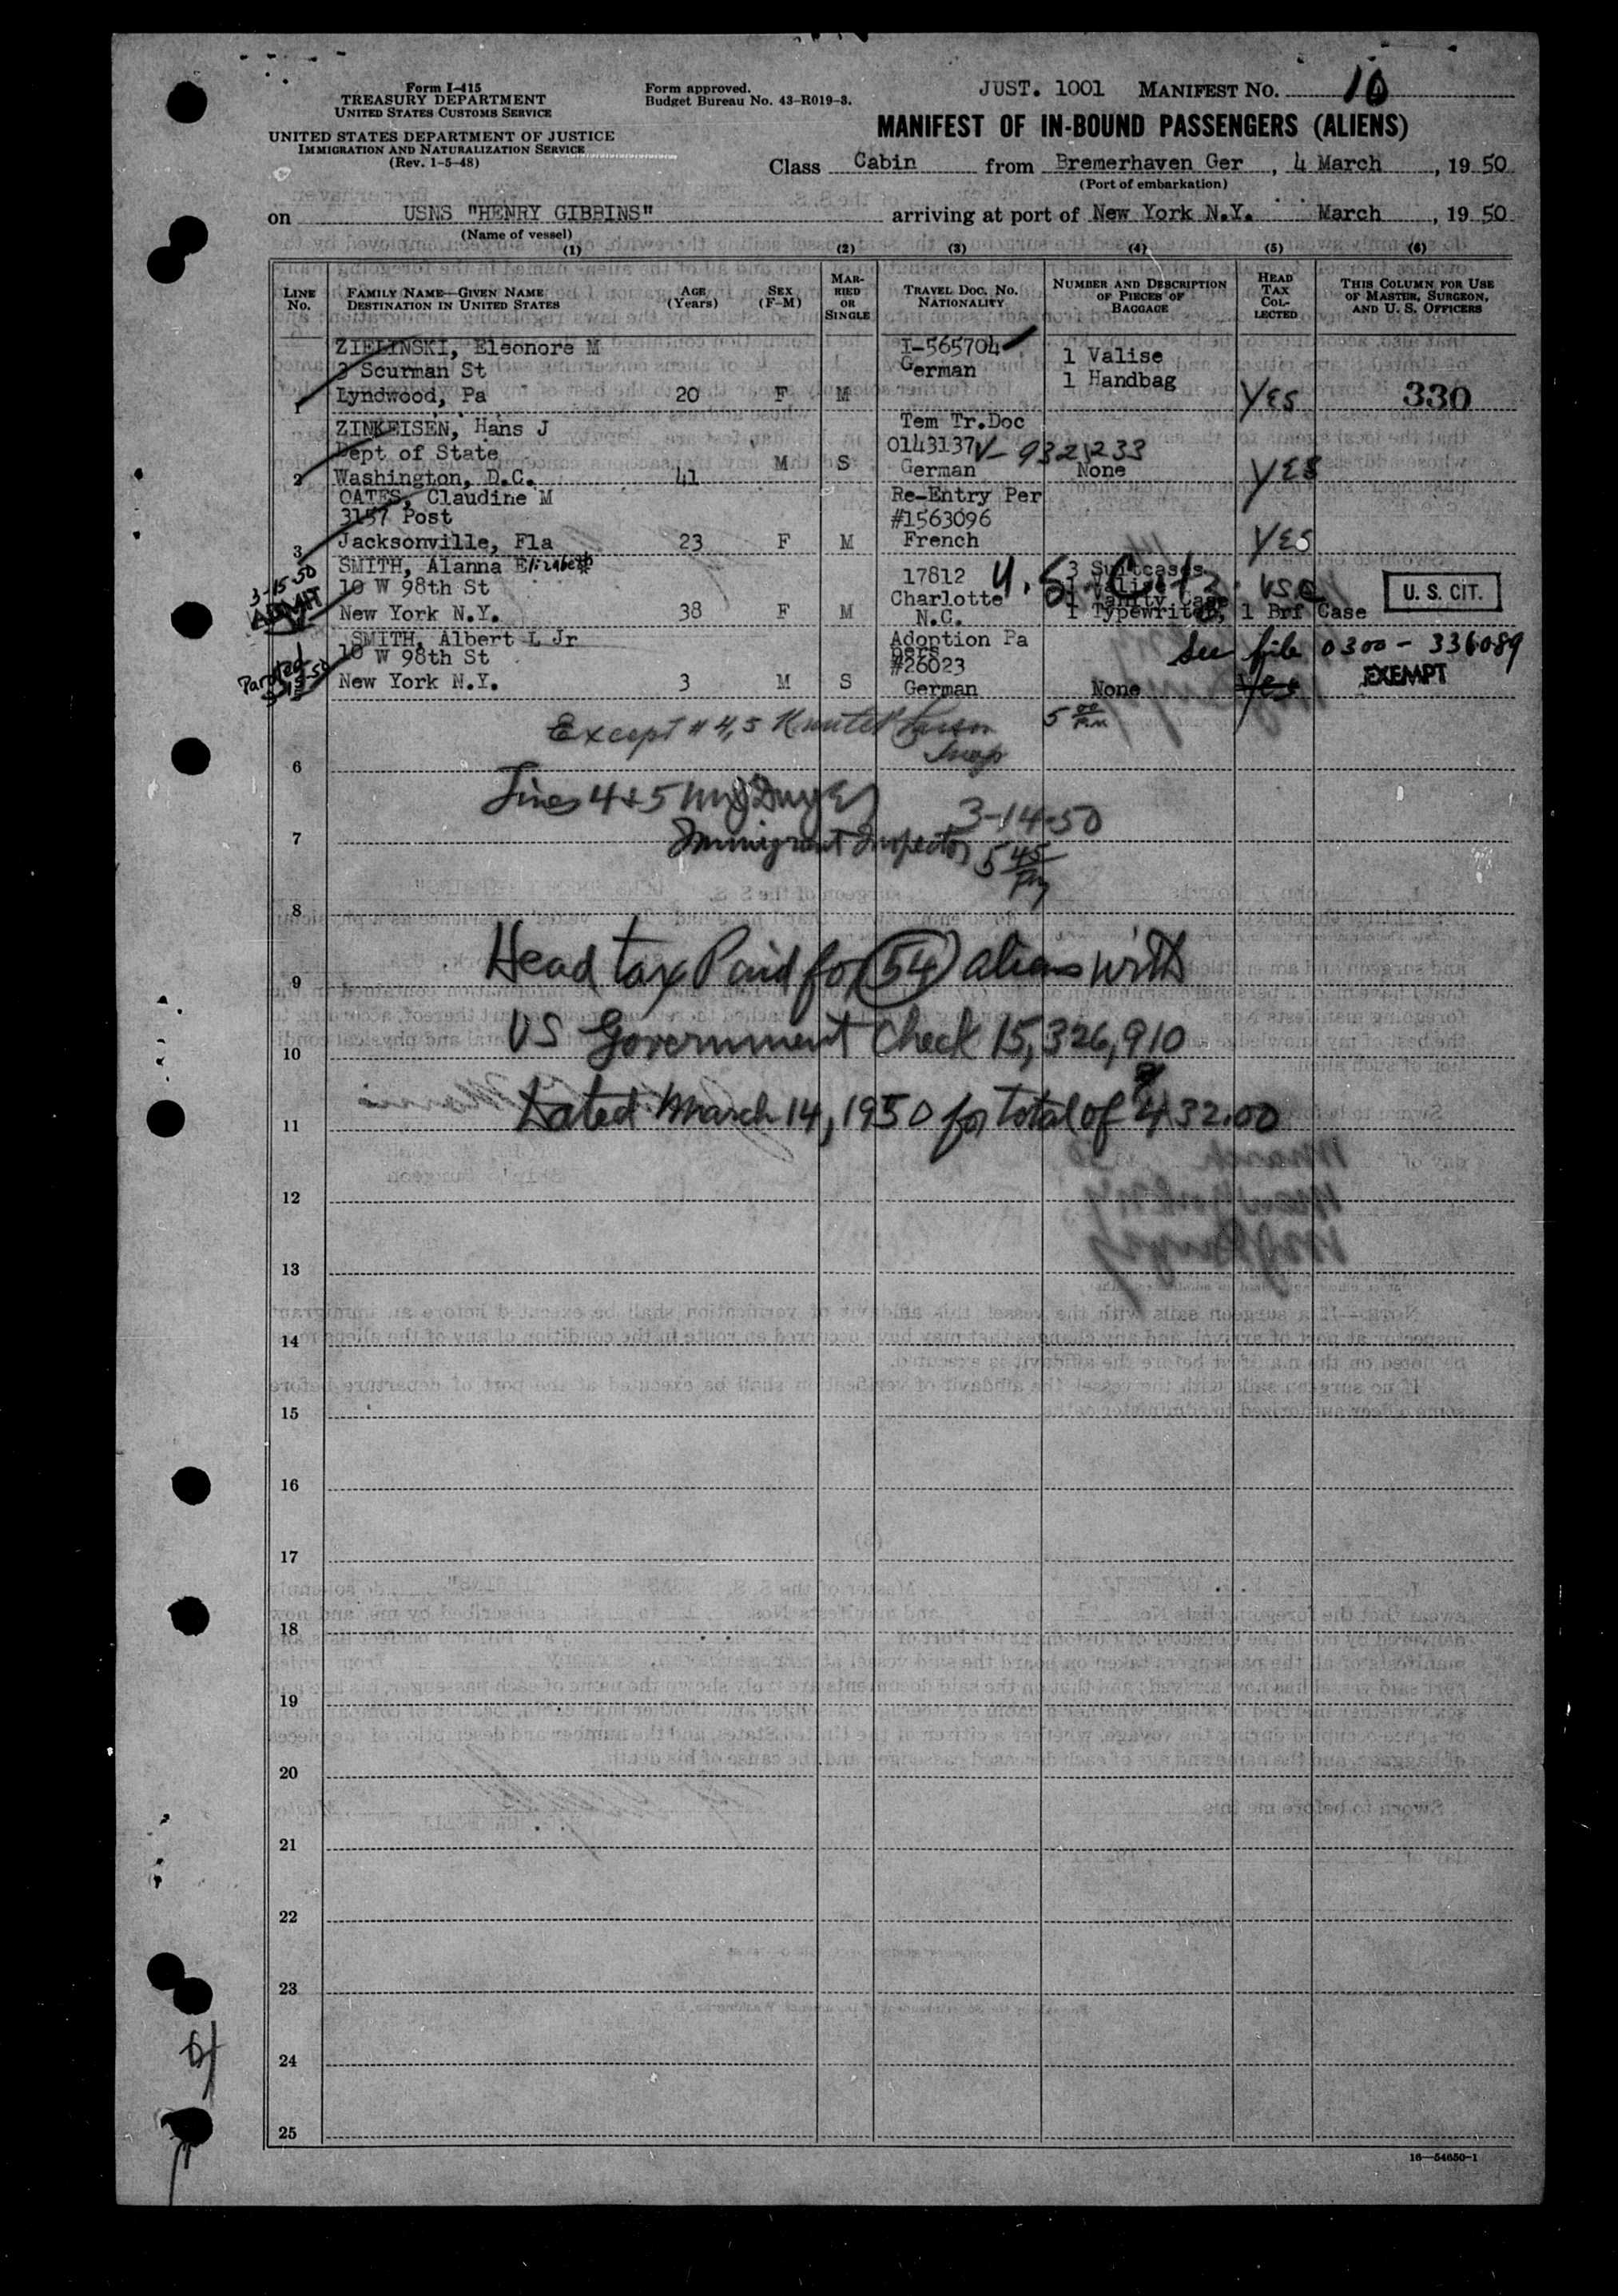 Form I-415
TREASURY DEPARTMENT
UNITED STATES CUSTOMS SERVICE
UNITED STATES DEPARTMENT OF JUSTICE
IMMIGRATION AND NATURALIZATION SERVICE
(Rev. 1-5-48)
Form approved.
Budget Bureau No. 43-R019-3.
JUST. 1001 MANIFEST NO. 10
MANIFEST OF IN-BOUND PASSENGERS (ALIENS)
Class Cabin from Bremerhaven Ger, 4 March, 19 50
(Port of embarkation)
on USNS "HENRY GIBBINS" arriving at port of New York N.Y. March, 19 50
(Name of vessel)
(1) (2) (3) (4) (5) (6)
LINE No. FAMILY NAME—GIVEN NAME DESTINATION IN UNITED STATES AGE (Years) SEX (F-M) MARRIED OR SINGLE TRAVEL DOC. NO. NATIONALITY NUMBER AND DESCRIPTION OF PIECES OF BAGGAGE HEAD TAX COLLECTED THIS COLUMN FOR USE OF MASTER, SURGEON, AND U. S. OFFICERS
ZIELINSKI, Eleonore M I-565704
3 Scurman St German 1 Valise
1 Handbag
1 Lyndwood, Pa 20 F M YES 330
ZINKEISEN, Hans J Tem Tr.Doc
Dept of State 0143137 V-9321233
2 Washington, D.C. 41 M S German None YES
OATES, Claudine M Re-Entry Per
3157 Post #1563096
3 Jacksonville, Fla 23 F M French YES
SMITH, Alanna Elizabeth
3-15-50 10 W 98th St 17812 U.S. Citz. 3 Suitcases USC U. S. CIT.
ADMIT New York N.Y. 38 F M Charlotte N.C. 1 Vanity Case 1 Typewriter, 1 Brf Case
SMITH, Albert L Jr Adoption Pa
10 W 98th St pers See file 0300-336089
#26023
Paroled New York N.Y. 3 M S German None Yes EXEMPT
Except #4,5 5 00 P.M.
Insp
6
Lines 4+5 3-14-50
7 Immigrant Inspector 5 45 PM
8
9 Head tax Paid for 54 aliens with
10 US Government Check 15,326,910
11 Dated March 14, 1950 for total of $432.00
12
13
14
15
16
17
18
19
20
21
22
23
24
25
16—54650-1